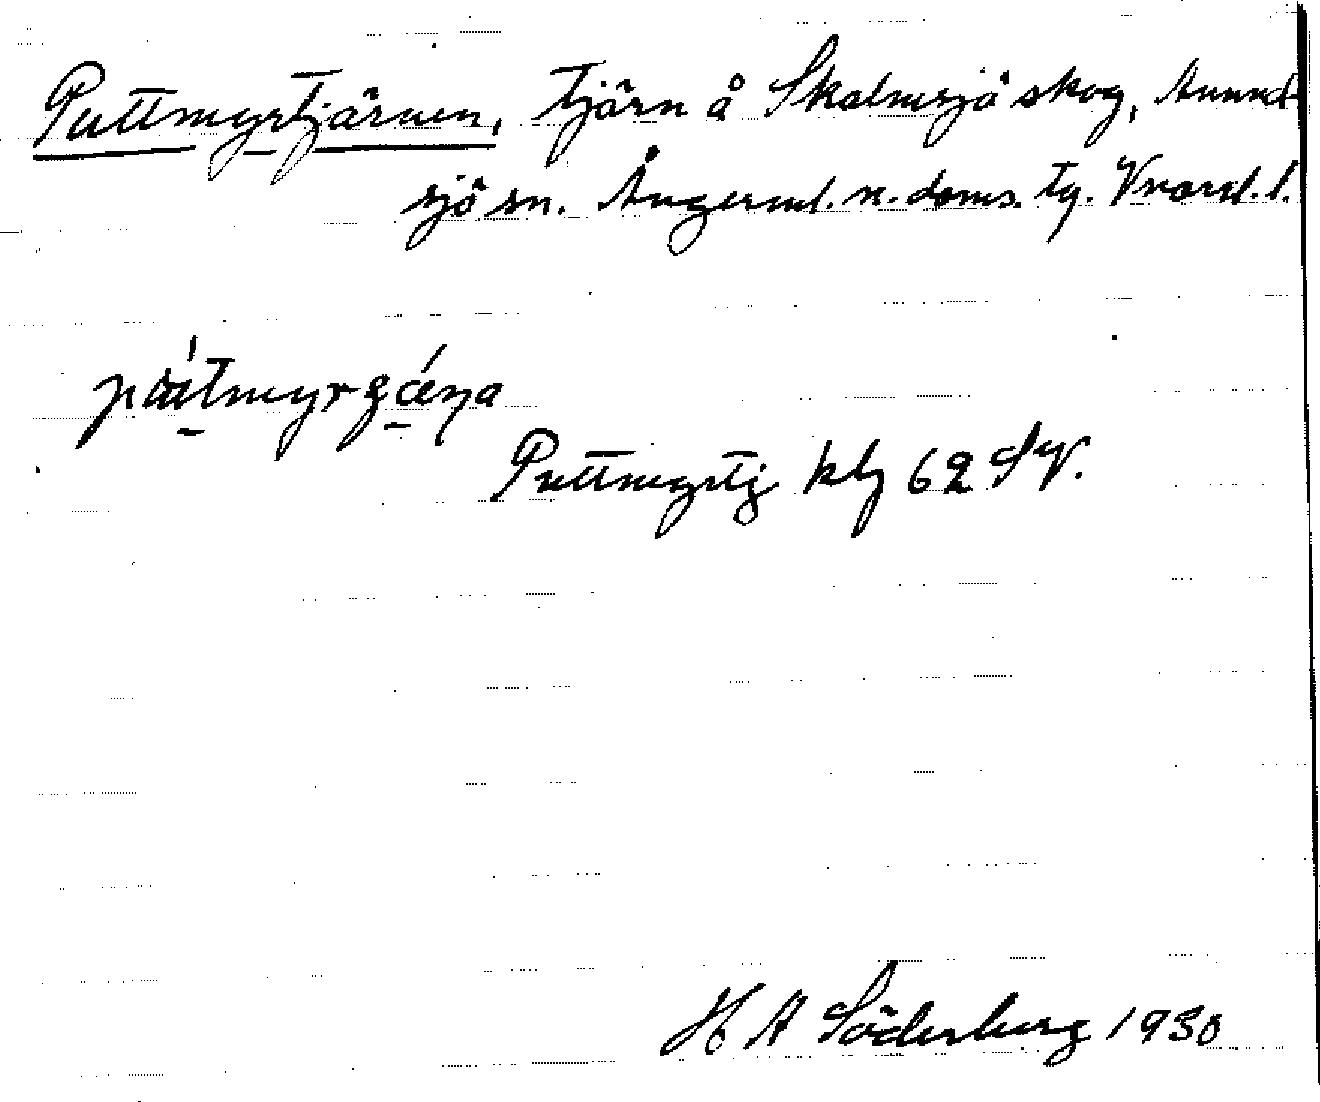 Puttmyrtjärnen, tjärn å Skalmsjö skog, Anund-
sjö sn. Ångerml. n. doms. tg. Vnord. l.
Puttmyrtj kbl 62 SV.
H A Söderberg 1930